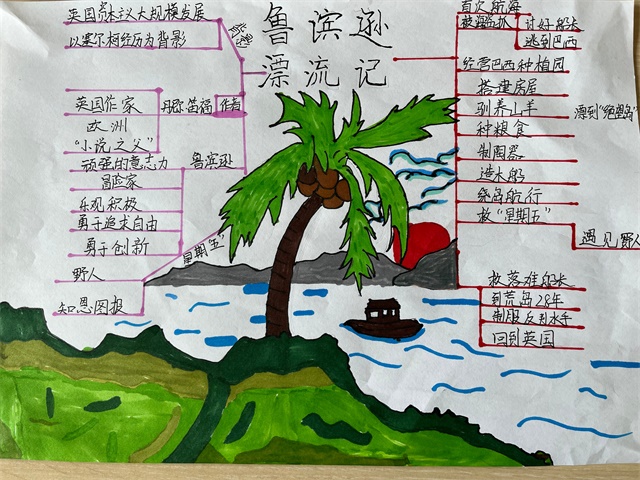 鲁滨逊
漂流记
英国资本主义大规模发展
以塞尔柯经历为背影
背影
英国作家
欧洲
"小说之父"
丹尼笛福
作者
顽强的意志力
冒险家
乐观积极
勇于追求自由
勇于创新
鲁滨逊
野人
知恩图报
星期五
首次航海
被海盗抓
讨好船长
逃到巴西
经营巴西种植园
搭建房屋
驯养山羊
种粮食
制陶器
造木船
绕岛航行
救"星期五"
漂到"绝望岛"
遇见野人
救落难船长
到荒岛28年
制服反叛水手
回到英国